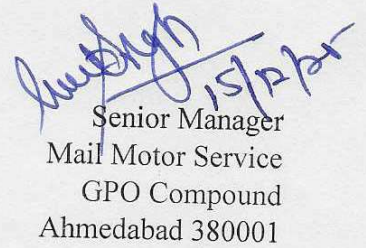 15/12/25
Senior Manager
Mail Motor Service
GPO Compound
Ahmedabad 380001